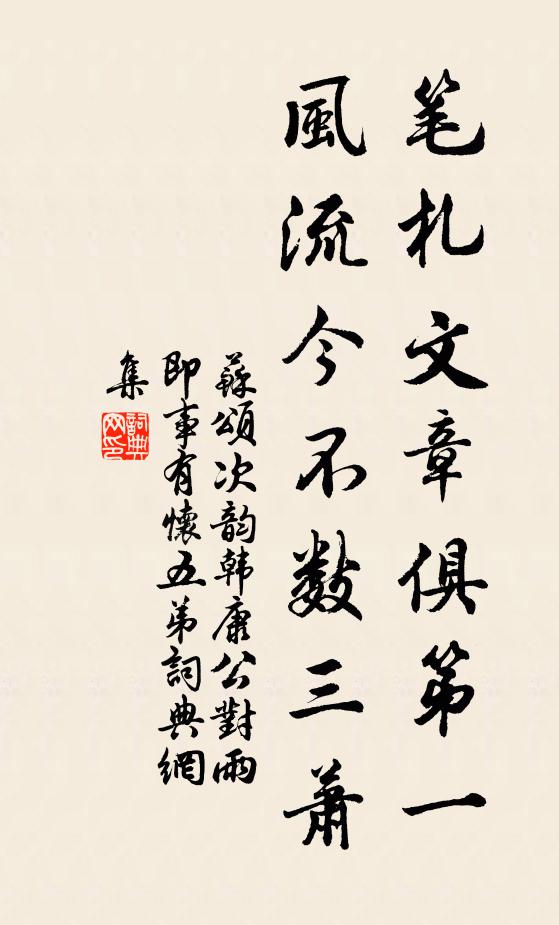 笔札文章俱第一
風流今不数三蕭
蘇頌次韵韩康公對雨
即事有懷五弟詞典網
集
詞典网印